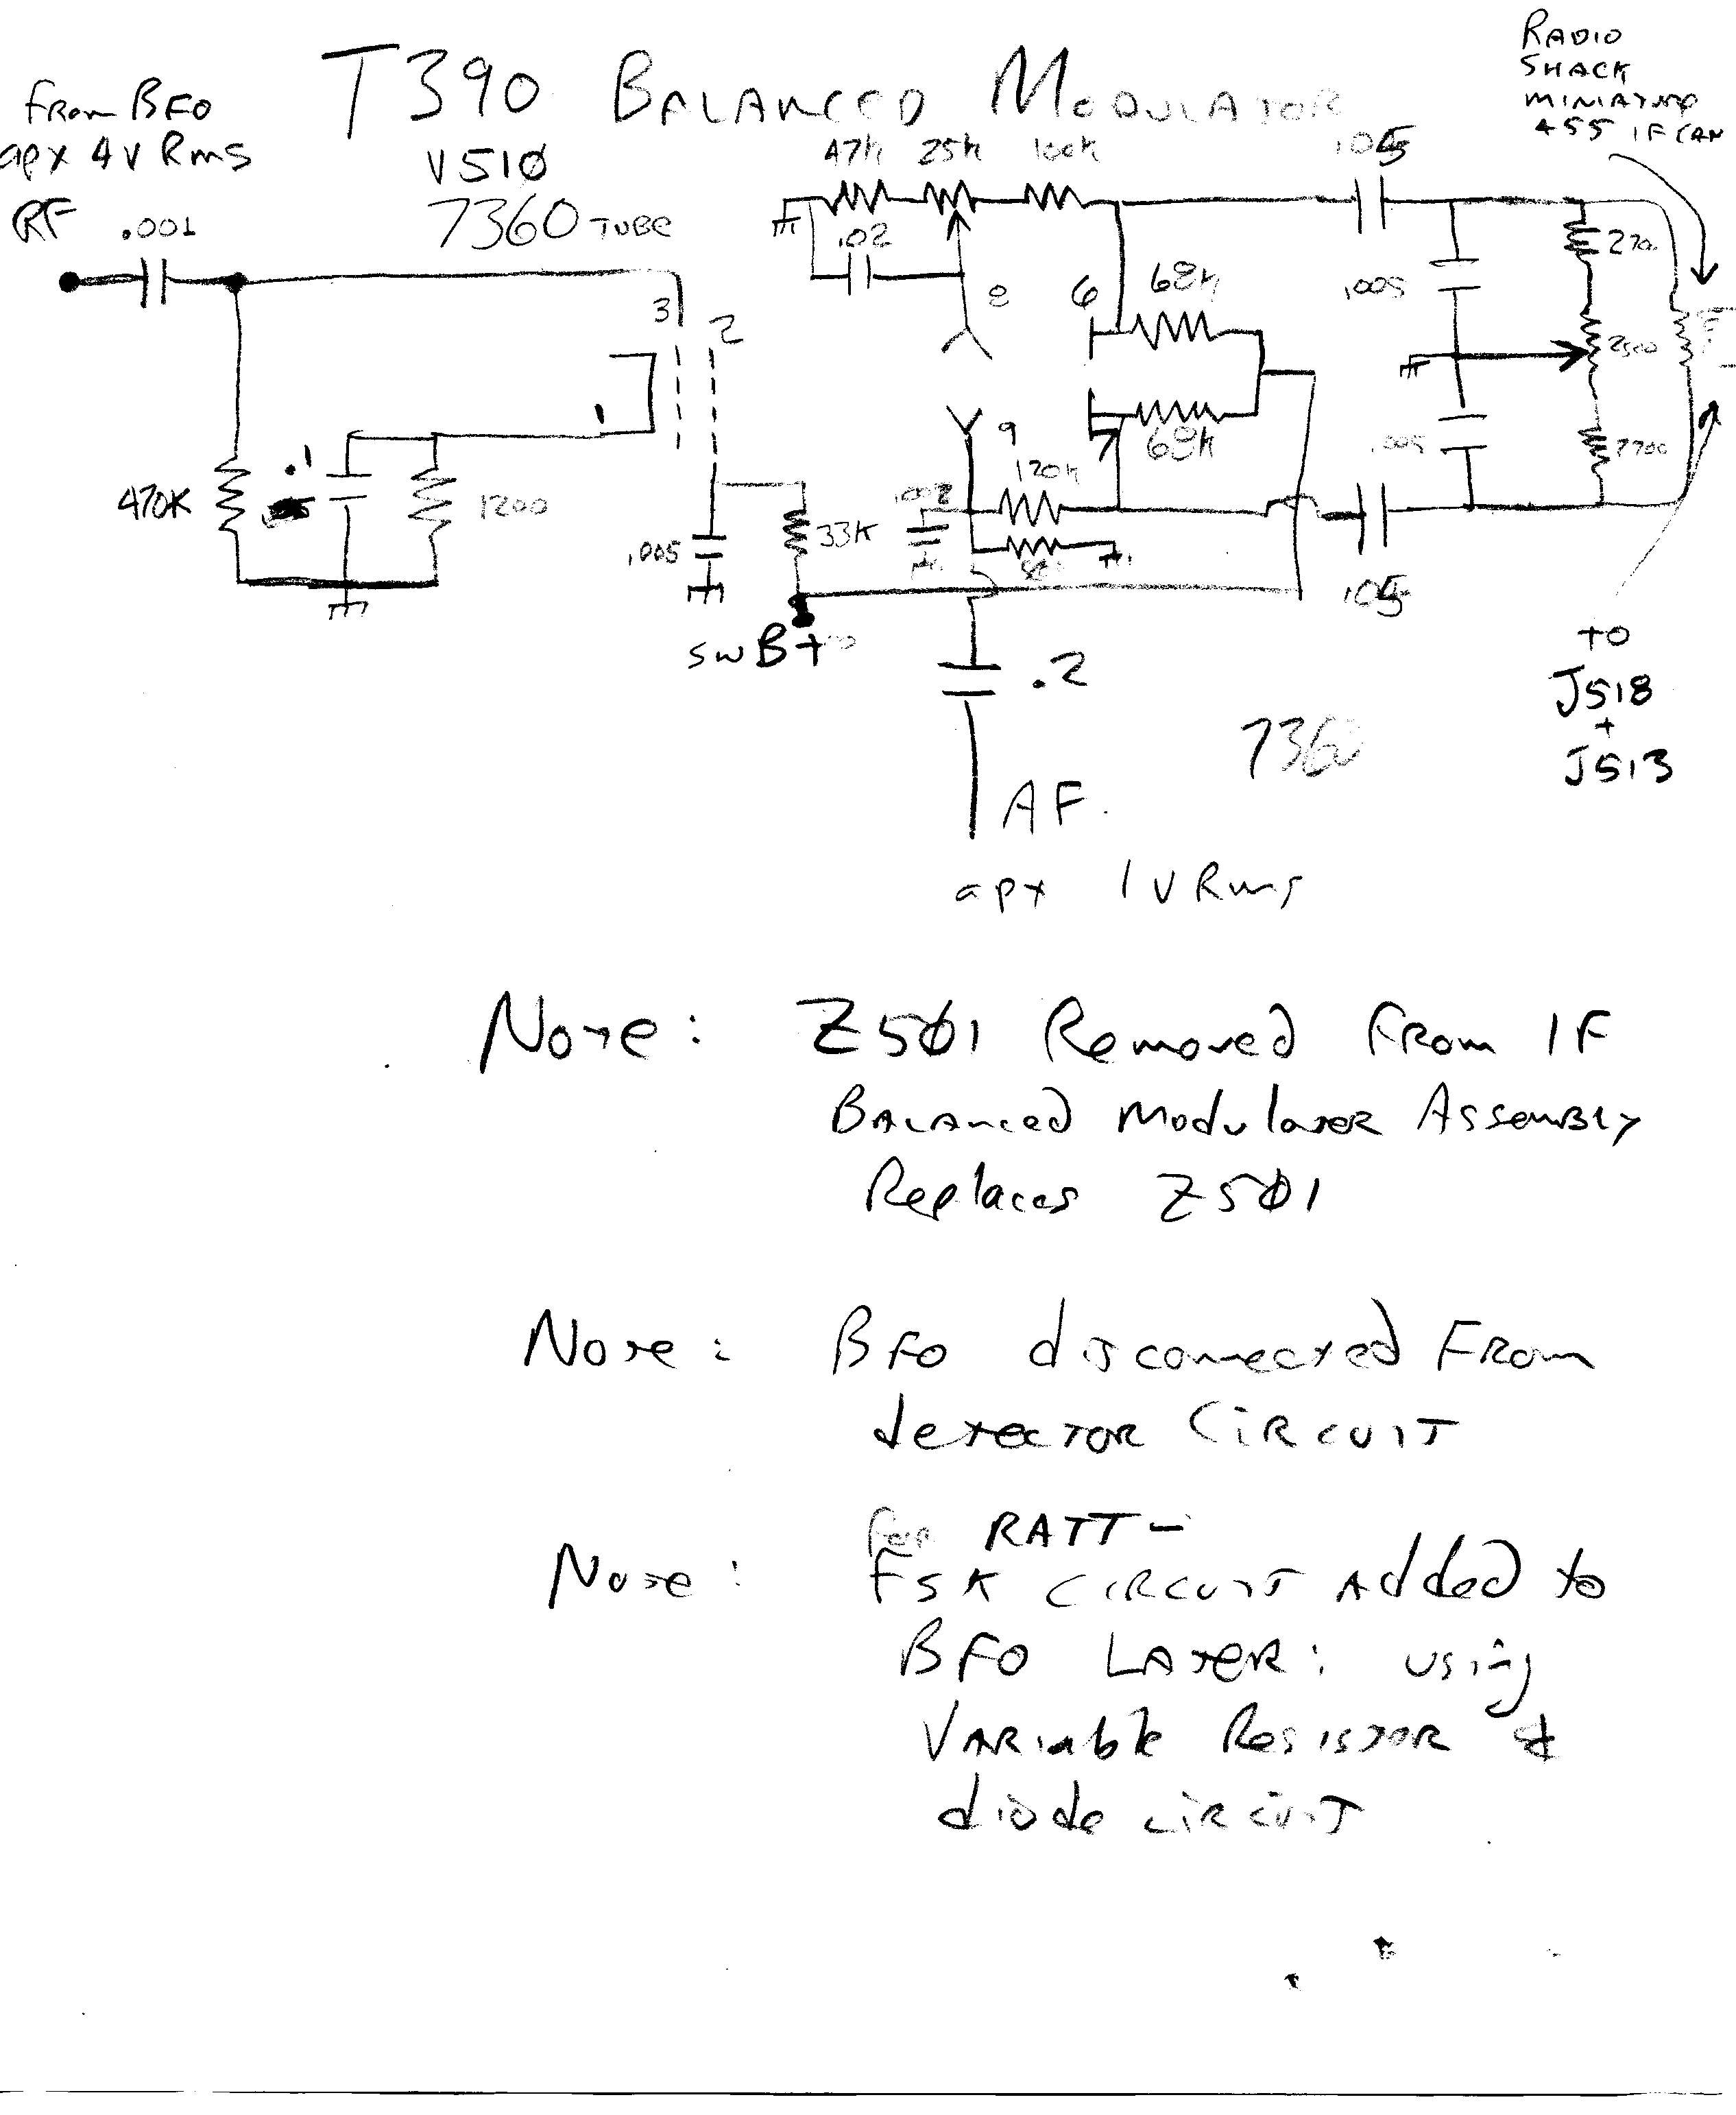 T390 BALANCED MODULATOR
V510
7360 TUBE
From BFO
apx 4V Rms
RF
.001
RADIO
SHACK
MINIATURE
455 IF CAN
47K 25K 100K
.02
.005
3
2
8
6
68K
1
9
7
68K
470K
.1
1200
.005
33K
.002
120K
.005
2500
.005
2700
SW B+
.2
AF.
apx 1 V Rms
7360
TO
J518
+
J513
Note: Z501 Removed From IF
Balanced Modulator Assembly
Replaces Z501
Note: BFO disconnected From
detector CIRCUIT
For RATT -
Note: FSK CIRCUIT Added to
BFO LATER: using
VARIABLE Resistor &
diode circuit